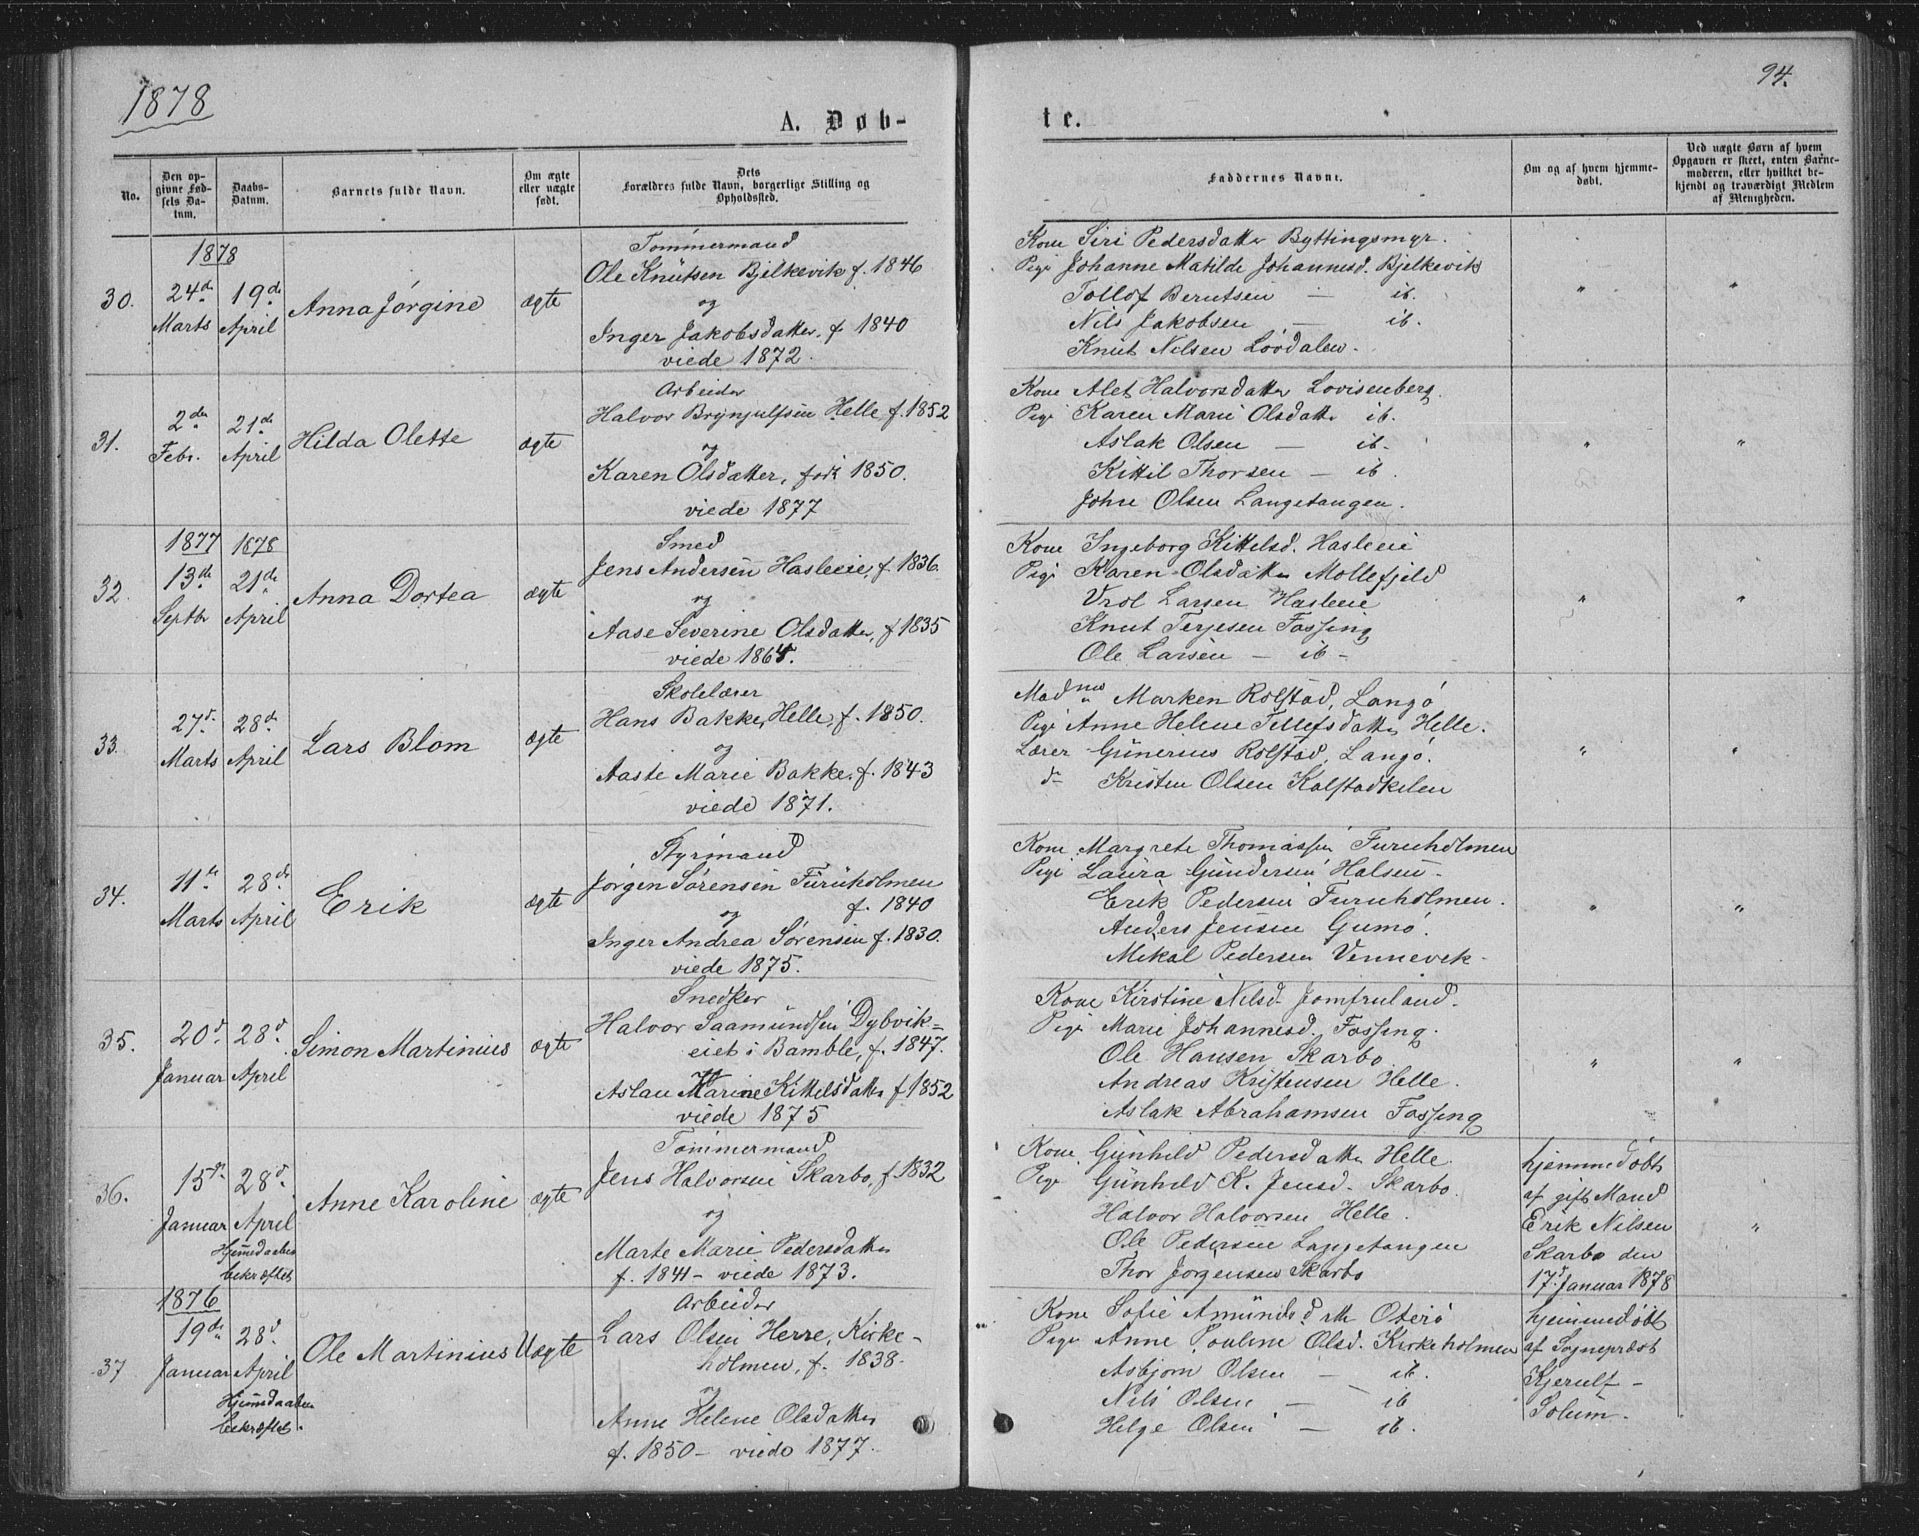 1878
94.
A. Døb-
te.
No.
Den op-
givne Fød-
sels Da-
tum.
Daabs-
Datum.
Barnets fulde Navn.
Om ægte
eller uægte
født.
Dets
Forældres fulde Navn, borgerlige Stilling og
Opholdssted.
Faddernes Navne.
Om og af hvem hjemme-
døbt.
Ved uægte Børn af hvem
Opgaven er skeet, enten Barne-
moderen, eller hvilket be-
kjendt og troværdigt Medlem
af Menigheden.
1878
30.
24de
Marts
19de
April
Anna Jørgine
ægte
Tømmermand
Ole Knutsen Bjelkevik f. 1846
og
Inger Jakobsdatter. f 1840
viede 1872.
Kone Siri Pedersdatter Byttingsmyr.
Pige Johanne Matilde Johannesd. Bjelkevik
Tollof Berntsen — ib.
Nils Jakobsen — ib.
Knut Nilsen Lövdalen.
" "
31.
2den
Febr.
21de
April
Hilda Olette
ægte
Arbeider
Halvor Brynjulfsen Helle f. 1852
og
Karen Olsdatter, født 1850.
viede 1877
Kone Alet Halvorsdatter Lovisenberg.
Pige Karen Marie Olsdatter ib.
Aslak Olsen — ib.
Kittil Thorsen — ib.
Johne Olsen Langetangen.
" "
32.
1877
13de
Septbr
1878
21de
April
Anna Dortea
ægte
Smed
Jens Andersen Hasleeie, f. 1836.
og
Aase Severine Olsdatter, f 1835
viede 1865.
Kone Ingeborg Kittelsd. Hasleeie
Pige Karen Olsdatter Mollefjeld
Vrol Larsen Hasleeie
Knut Terjesen Fossing
Ole Larsen — ib —
" "
33.
27d.
Marts
28de
April
Lars Blom
ægte
Skolelærer
Hans Bakke, Helle, f. 1850.
og
Aaste Marie Bakke. f. 1843
viede 1871.
Madme Marken Rolstad, Langö
Pige Anne Helene Tellefsdatter Helle.
Lærer Gunerius Rolstad, Langö.
do Kristen Olsen Kolstadkilen
" "
34.
11te
Marts
28de
April
Erik
ægte
Styrmand
Jørgen Sørensen Furuholmen
og f. 1840
Inger Andrea Sørensen f. 1830.
viede 1875.
Kone Margrete Thomassen Furuholmen
Pige Laura Gundersen Halsen
Erik Pedersen Furuholmen.
Anders Jensen Gumö.
Mikal Pedersen Vennevik.
" "
35.
20d.
Januar
28d.
April
Simon Martinius
ægte
Snedker
Halvor Saamundsen Dybvik-
eiet i Bamble, f. 1847.
og
Aslau Karine Kittelsdatter f 1852
viede 1875
Kone Kirstine Nilsd. Jomfruland.
Pige Marie Johannesd. Fossing.
Ole Hansen Skarbo
Andreas Kristensen Helle.
Aslak Abrahamsen Fossing
" "
36.
15de
Januar
28d.
April
Hjemmedaaben
bekræftet
Anne Karoline
ægte
Tømmermand
Jens Halvorsen Skarbo, f. 1832
og
Marte Marie Pedersdatter
f. 1841 — viede 1873.
Kone Gunhild Pedersdatter Helle.
Pige Gunhild K. Jensd. Skarbo.
Halvor Halvorsen Helle.
Ole Pedersen Langetangen
Thor Jørgensen Skarbo
hjemmedøbt
af gift Mand
Erik Nilsen
Skarbo den
17d. Januar 1878
"
37
1876
19de
Januar
28d.
April
Hjemmedaaben
bekræftet.
Ole Martinius
Uægte
Arbeider
Lars Olsen Herre, Kirke-
holmen, f. 1838.
og
Anne Helene Olsdatter
f. 1850 — viede 1877.
Kone Sofie Amundsdatter Oterö
Pige Anne Pauline Olsd. Kirkeholmen
Asbjørn Olsen — ib.
Nils Olsen — ib
Helge Olsen — ib.
hjemmedøbt
af Sogneprest
Kjerulf —
Solum.